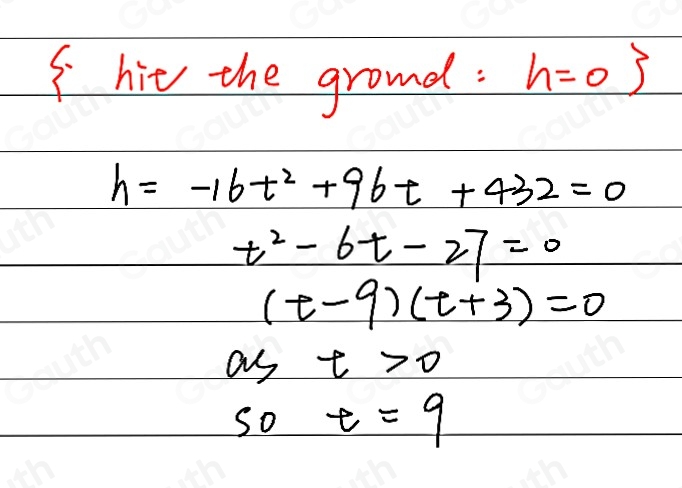 { hit the ground : h=0 }
h = -16t² + 96t + 432 = 0
t² - 6t - 27 = 0
(t-9)(t+3) = 0
as t > 0
so t = 9